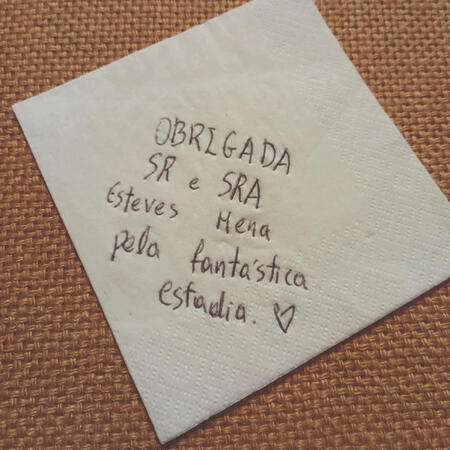 OBRIGADA
SR e SRA
Esteves Mena
pela fantástica
estadia. ♡